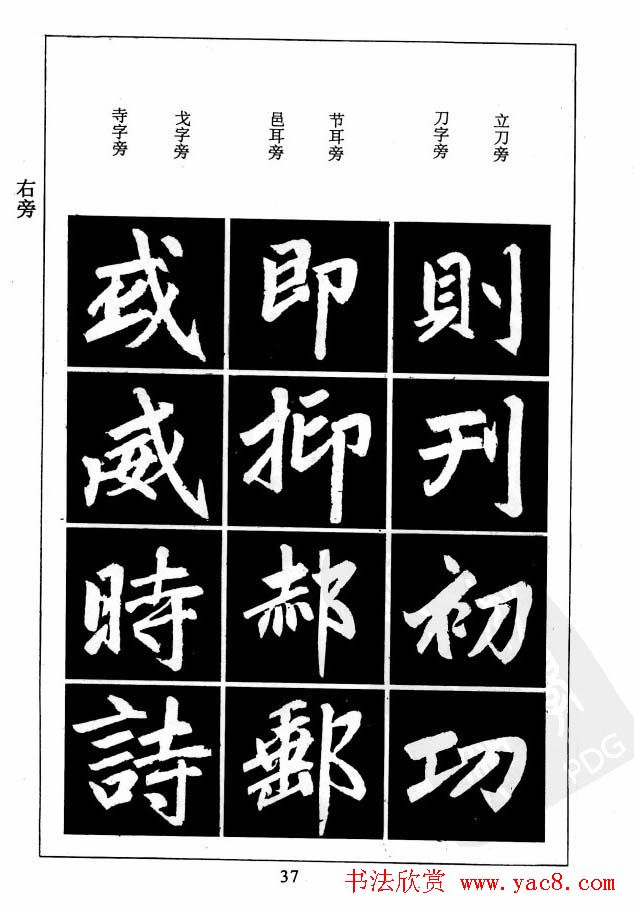 右旁
立刀旁
刀字旁
节耳旁
邑耳旁
戈字旁
寺字旁
則刊初功
即抑郝鄭
或威時詩
37
书法欣赏 www.yac8.com
PDG